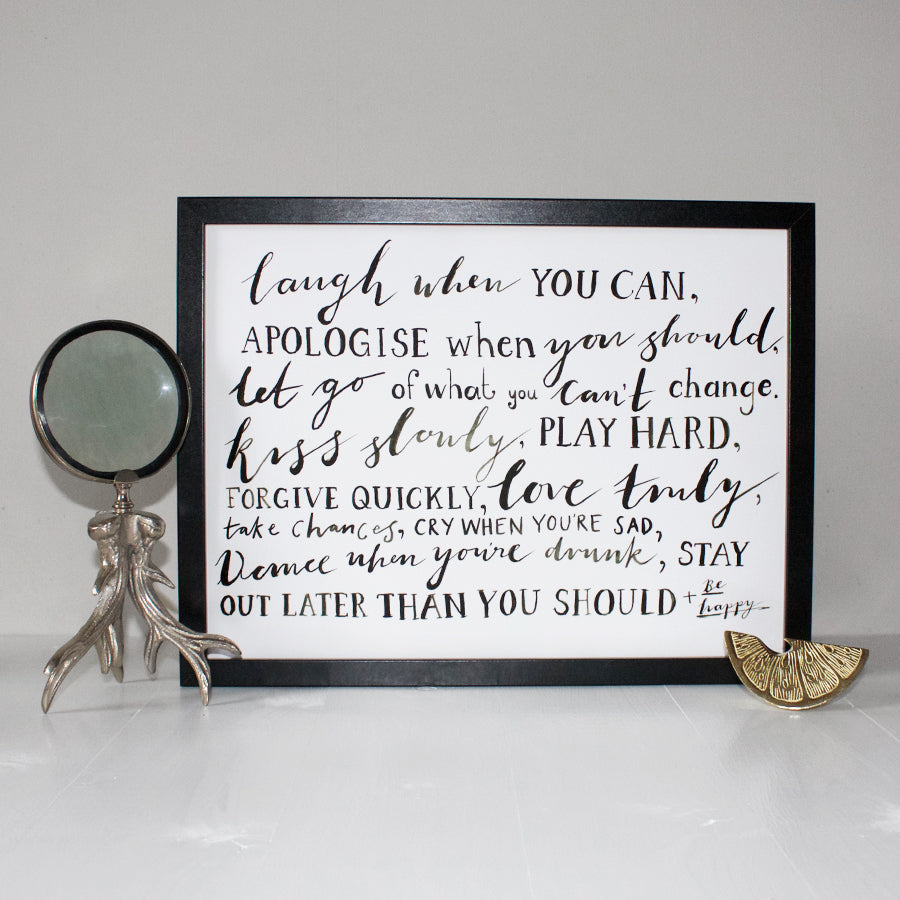 laugh when YOU CAN,
APOLOGISE when you should,
let go of what you can't change.
kiss slowly, PLAY HARD,
FORGIVE QUICKLY, love truly,
take chances, CRY WHEN YOU'RE SAD,
Dance when you're drunk, STAY
OUT LATER THAN YOU SHOULD + Be
happy